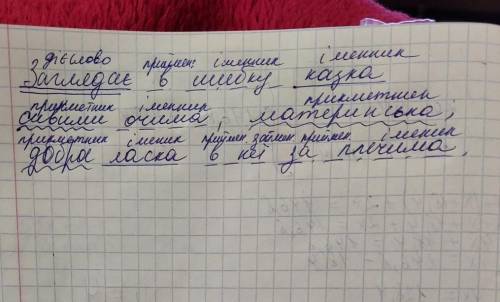 дієслово праймен іменник іменник
Заглядає в шибку казка
прикметник іменник прикметник
сивими очима, материнська,
прикметник іменик приймен. займен. приймен іменник
добра ласка в неї за плечима.